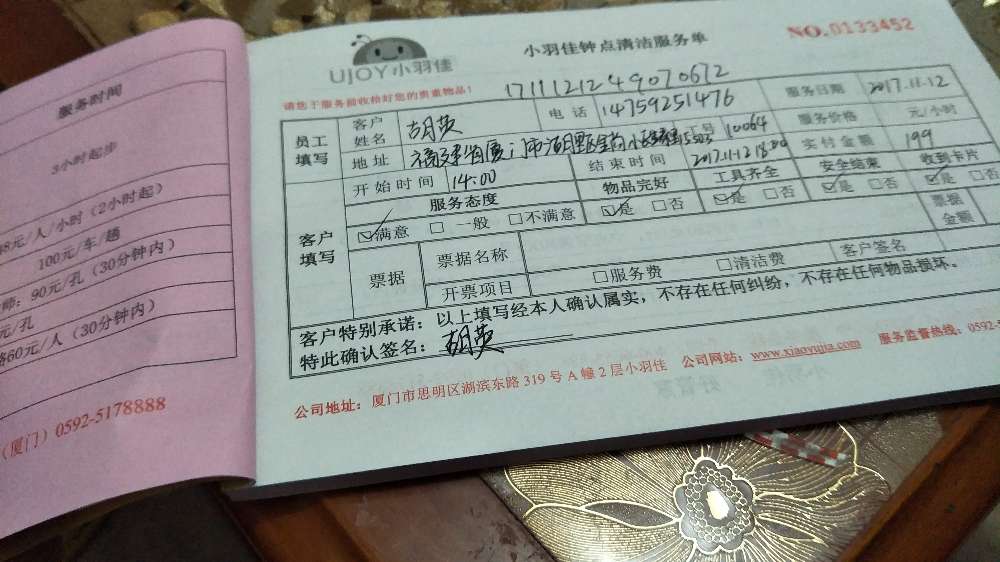 服务时间
3小时起步
48元/人/小时（2小时起）
100元/车/趟
师：90元/孔（30分钟内）
元/孔
格60元/人（30分钟内）
（厦门）0592-5178888
UJOY小羽佳
小羽佳钟点清洁服务单
NO.0133452
请您于服务前收拾好您的贵重物品！
1711121249070672
员工填写
客户姓名 胡英 电话 14759251476 服务日期 2017.11.12
地址 福建省厦门市湖里区 5503 卡号 10064 服务价格 元/小时
开始时间 14:00 结束时间 2017.11.12 18:00 实付金额 199
客户填写
服务态度 物品完好 工具齐全 安全结束 收到卡片
☑满意 □一般 □不满意 ☑是 □否 ☑是 □否 ☑是 □否 ☑是 □否
票据 票据名称 票据金额
开票项目 □服务费 □清洁费 客户签名
客户特别承诺：以上填写经本人确认属实，不存在任何纠纷，不存在任何物品损坏。
特此确认签名：胡英
公司地址：厦门市思明区湖滨东路 319 号 A 幢 2 层小羽佳 公司网站：www.xiaoyujia.com 服务监督热线：0592-